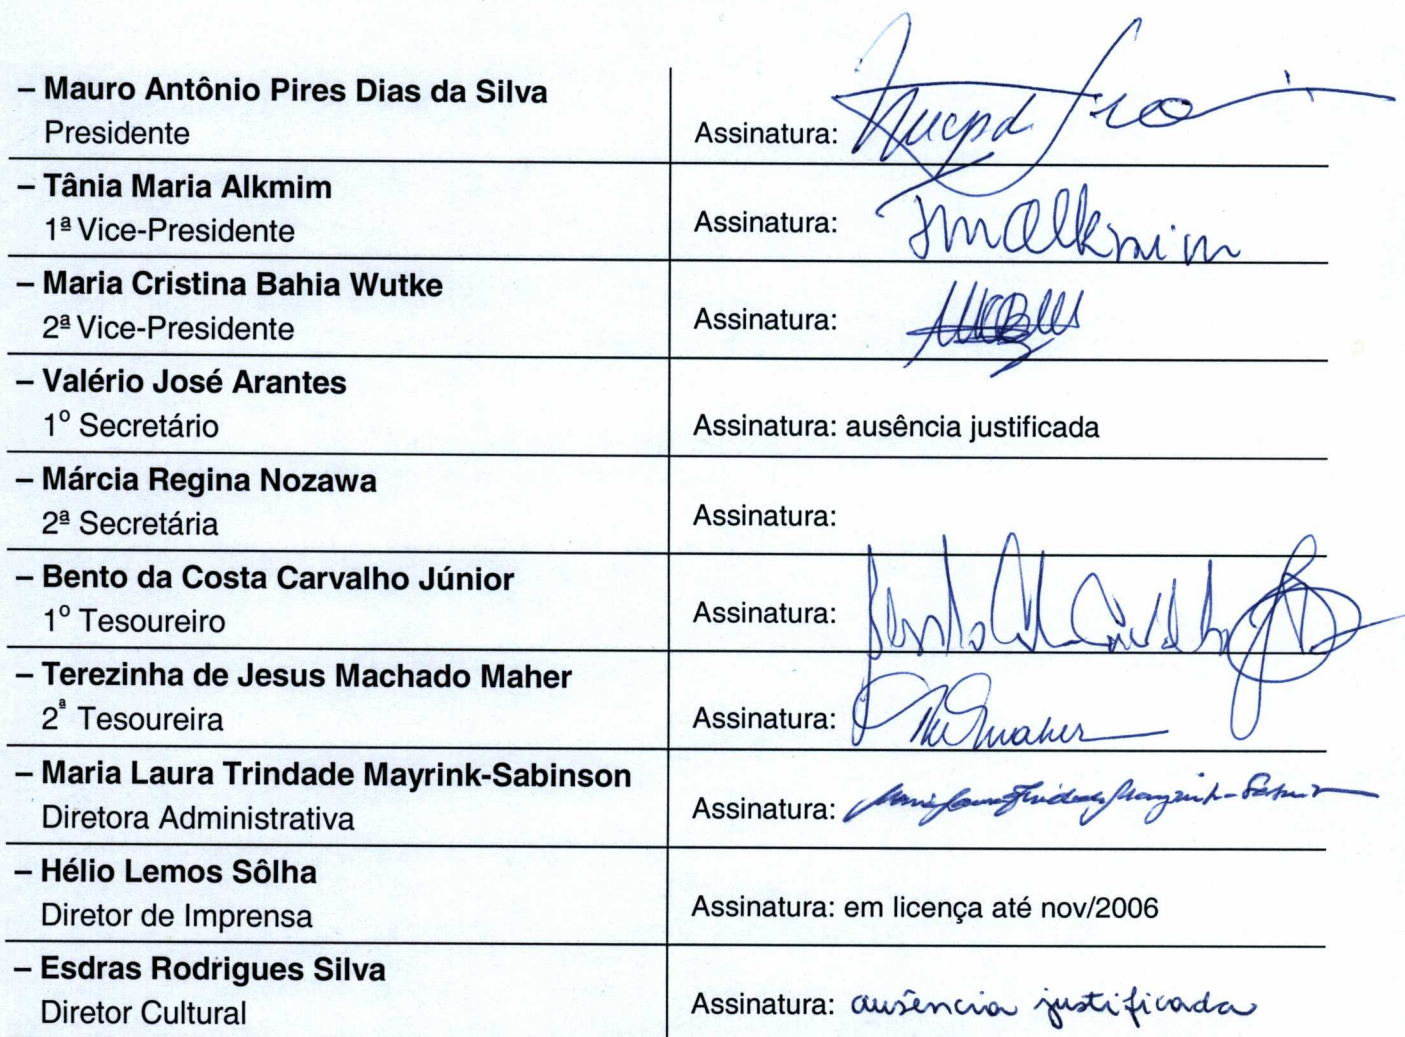 – Mauro Antônio Pires Dias da Silva
Presidente
Assinatura:
– Tânia Maria Alkmim
1ª Vice-Presidente
Assinatura: TmAlkmim
– Maria Cristina Bahia Wutke
2ª Vice-Presidente
Assinatura:
– Valério José Arantes
1º Secretário
Assinatura: ausência justificada
– Márcia Regina Nozawa
2ª Secretária
Assinatura:
– Bento da Costa Carvalho Júnior
1º Tesoureiro
Assinatura:
– Terezinha de Jesus Machado Maher
2ª Tesoureira
Assinatura:
– Maria Laura Trindade Mayrink-Sabinson
Diretora Administrativa
Assinatura: Maria Laura Trindade Mayrink-Sabinson
– Hélio Lemos Sôlha
Diretor de Imprensa
Assinatura: em licença até nov/2006
– Esdras Rodrigues Silva
Diretor Cultural
Assinatura: ausência justificada